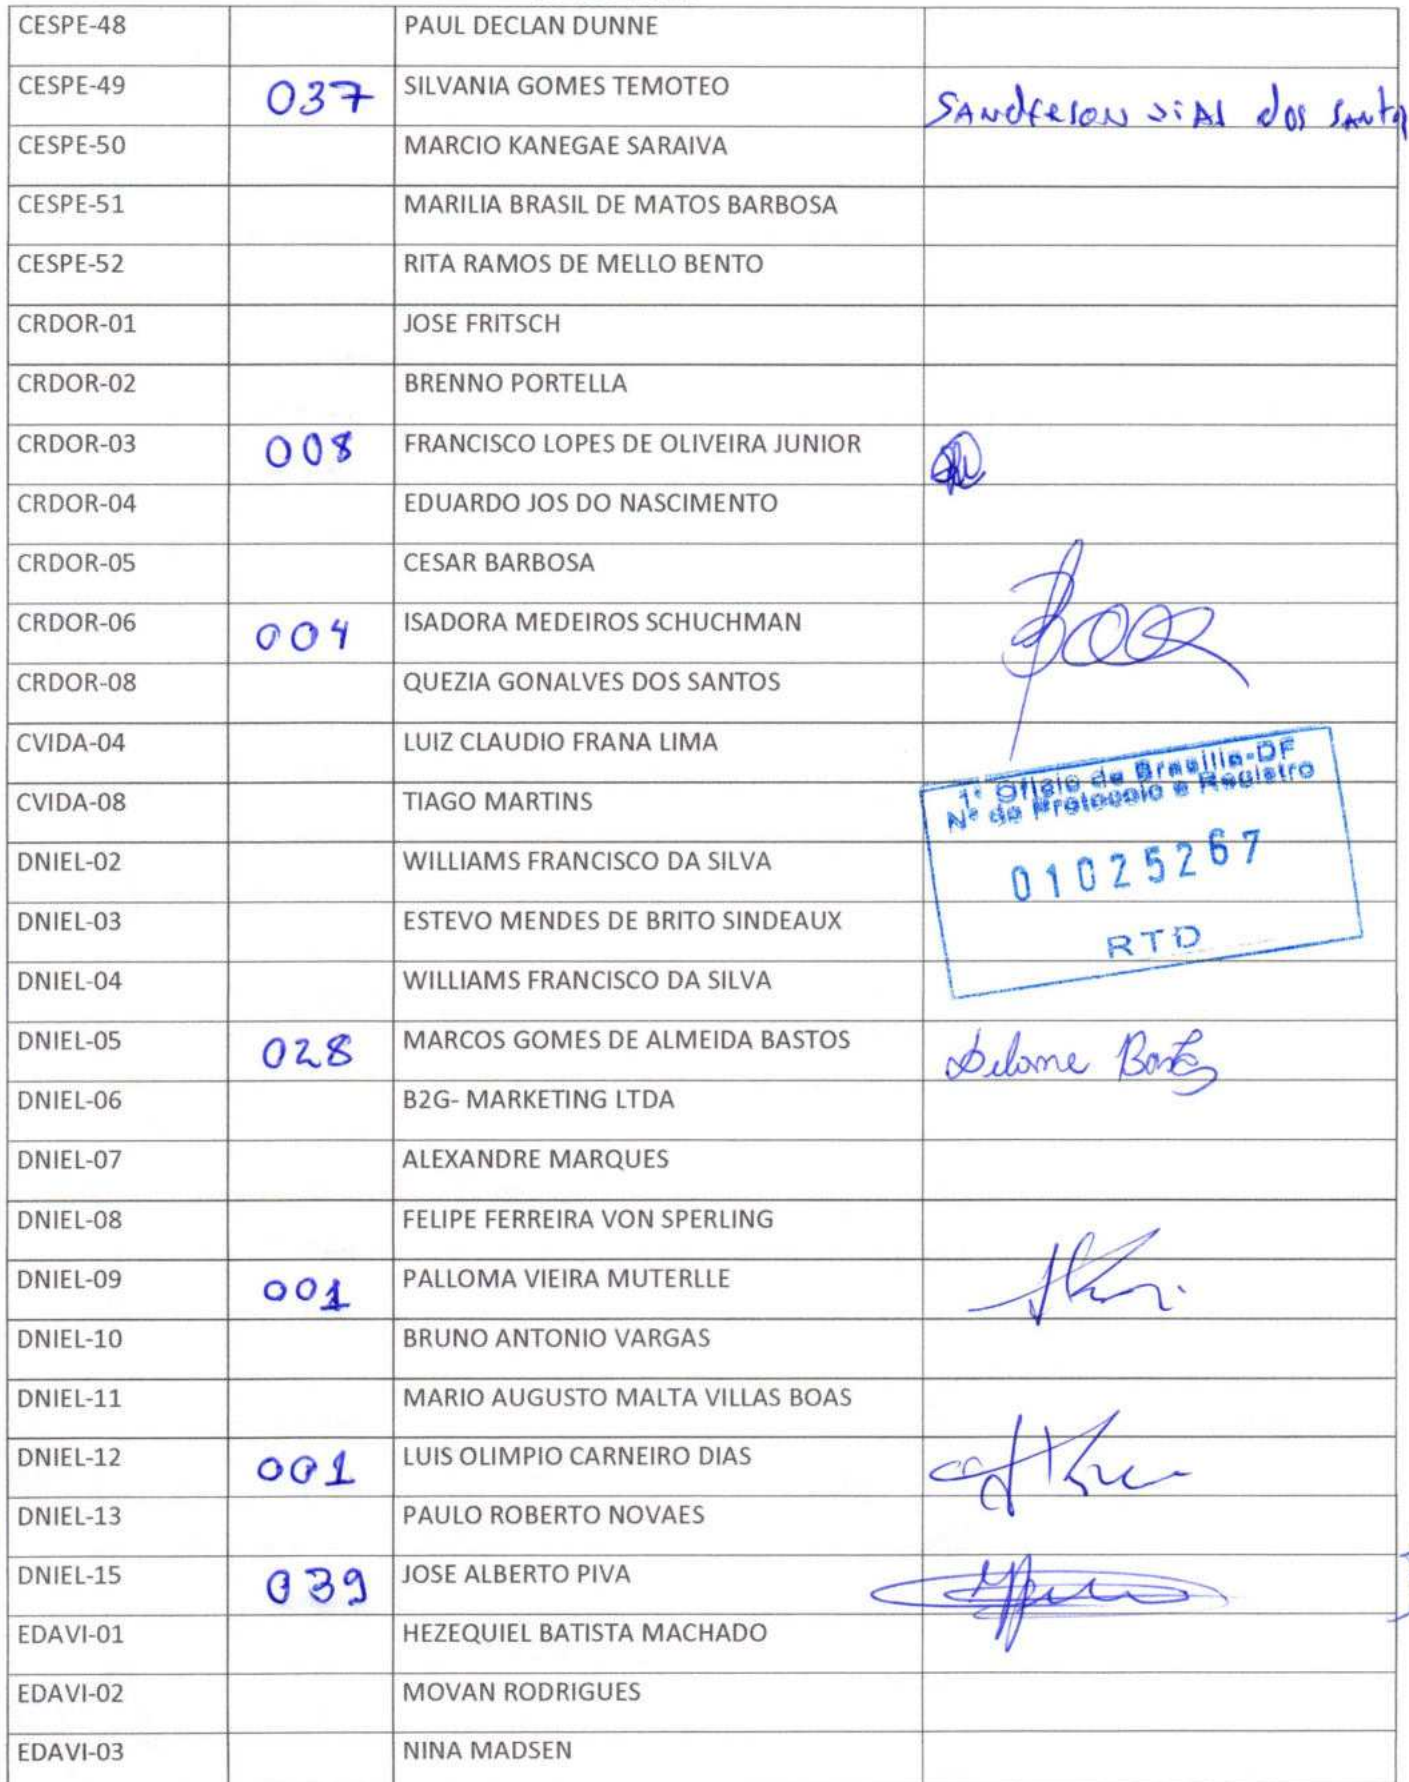 CESPE-48 PAUL DECLAN DUNNE
CESPE-49 037 SILVANIA GOMES TEMOTEO SANDERSON DIAS dos SANTOS
CESPE-50 MARCIO KANEGAE SARAIVA
CESPE-51 MARILIA BRASIL DE MATOS BARBOSA
CESPE-52 RITA RAMOS DE MELLO BENTO
CRDOR-01 JOSE FRITSCH
CRDOR-02 BRENNO PORTELLA
CRDOR-03 008 FRANCISCO LOPES DE OLIVEIRA JUNIOR
CRDOR-04 EDUARDO JOS DO NASCIMENTO
CRDOR-05 CESAR BARBOSA
CRDOR-06 004 ISADORA MEDEIROS SCHUCHMAN
CRDOR-08 QUEZIA GONALVES DOS SANTOS
CVIDA-04 LUIZ CLAUDIO FRANA LIMA
1º Ofício de Brasília-DF
CVIDA-08 TIAGO MARTINS
Nº de Protocolo e Registro
DNIEL-02 WILLIAMS FRANCISCO DA SILVA
01025267
DNIEL-03 ESTEVO MENDES DE BRITO SINDEAUX
RTD
DNIEL-04 WILLIAMS FRANCISCO DA SILVA
DNIEL-05 028 MARCOS GOMES DE ALMEIDA BASTOS Bastos
DNIEL-06 B2G- MARKETING LTDA
DNIEL-07 ALEXANDRE MARQUES
DNIEL-08 FELIPE FERREIRA VON SPERLING
DNIEL-09 001 PALLOMA VIEIRA MUTERLLE
DNIEL-10 BRUNO ANTONIO VARGAS
DNIEL-11 MARIO AUGUSTO MALTA VILLAS BOAS
DNIEL-12 001 LUIS OLIMPIO CARNEIRO DIAS
DNIEL-13 PAULO ROBERTO NOVAES
DNIEL-15 039 JOSE ALBERTO PIVA
EDAVI-01 HEZEQUIEL BATISTA MACHADO
EDAVI-02 MOVAN RODRIGUES
EDAVI-03 NINA MADSEN